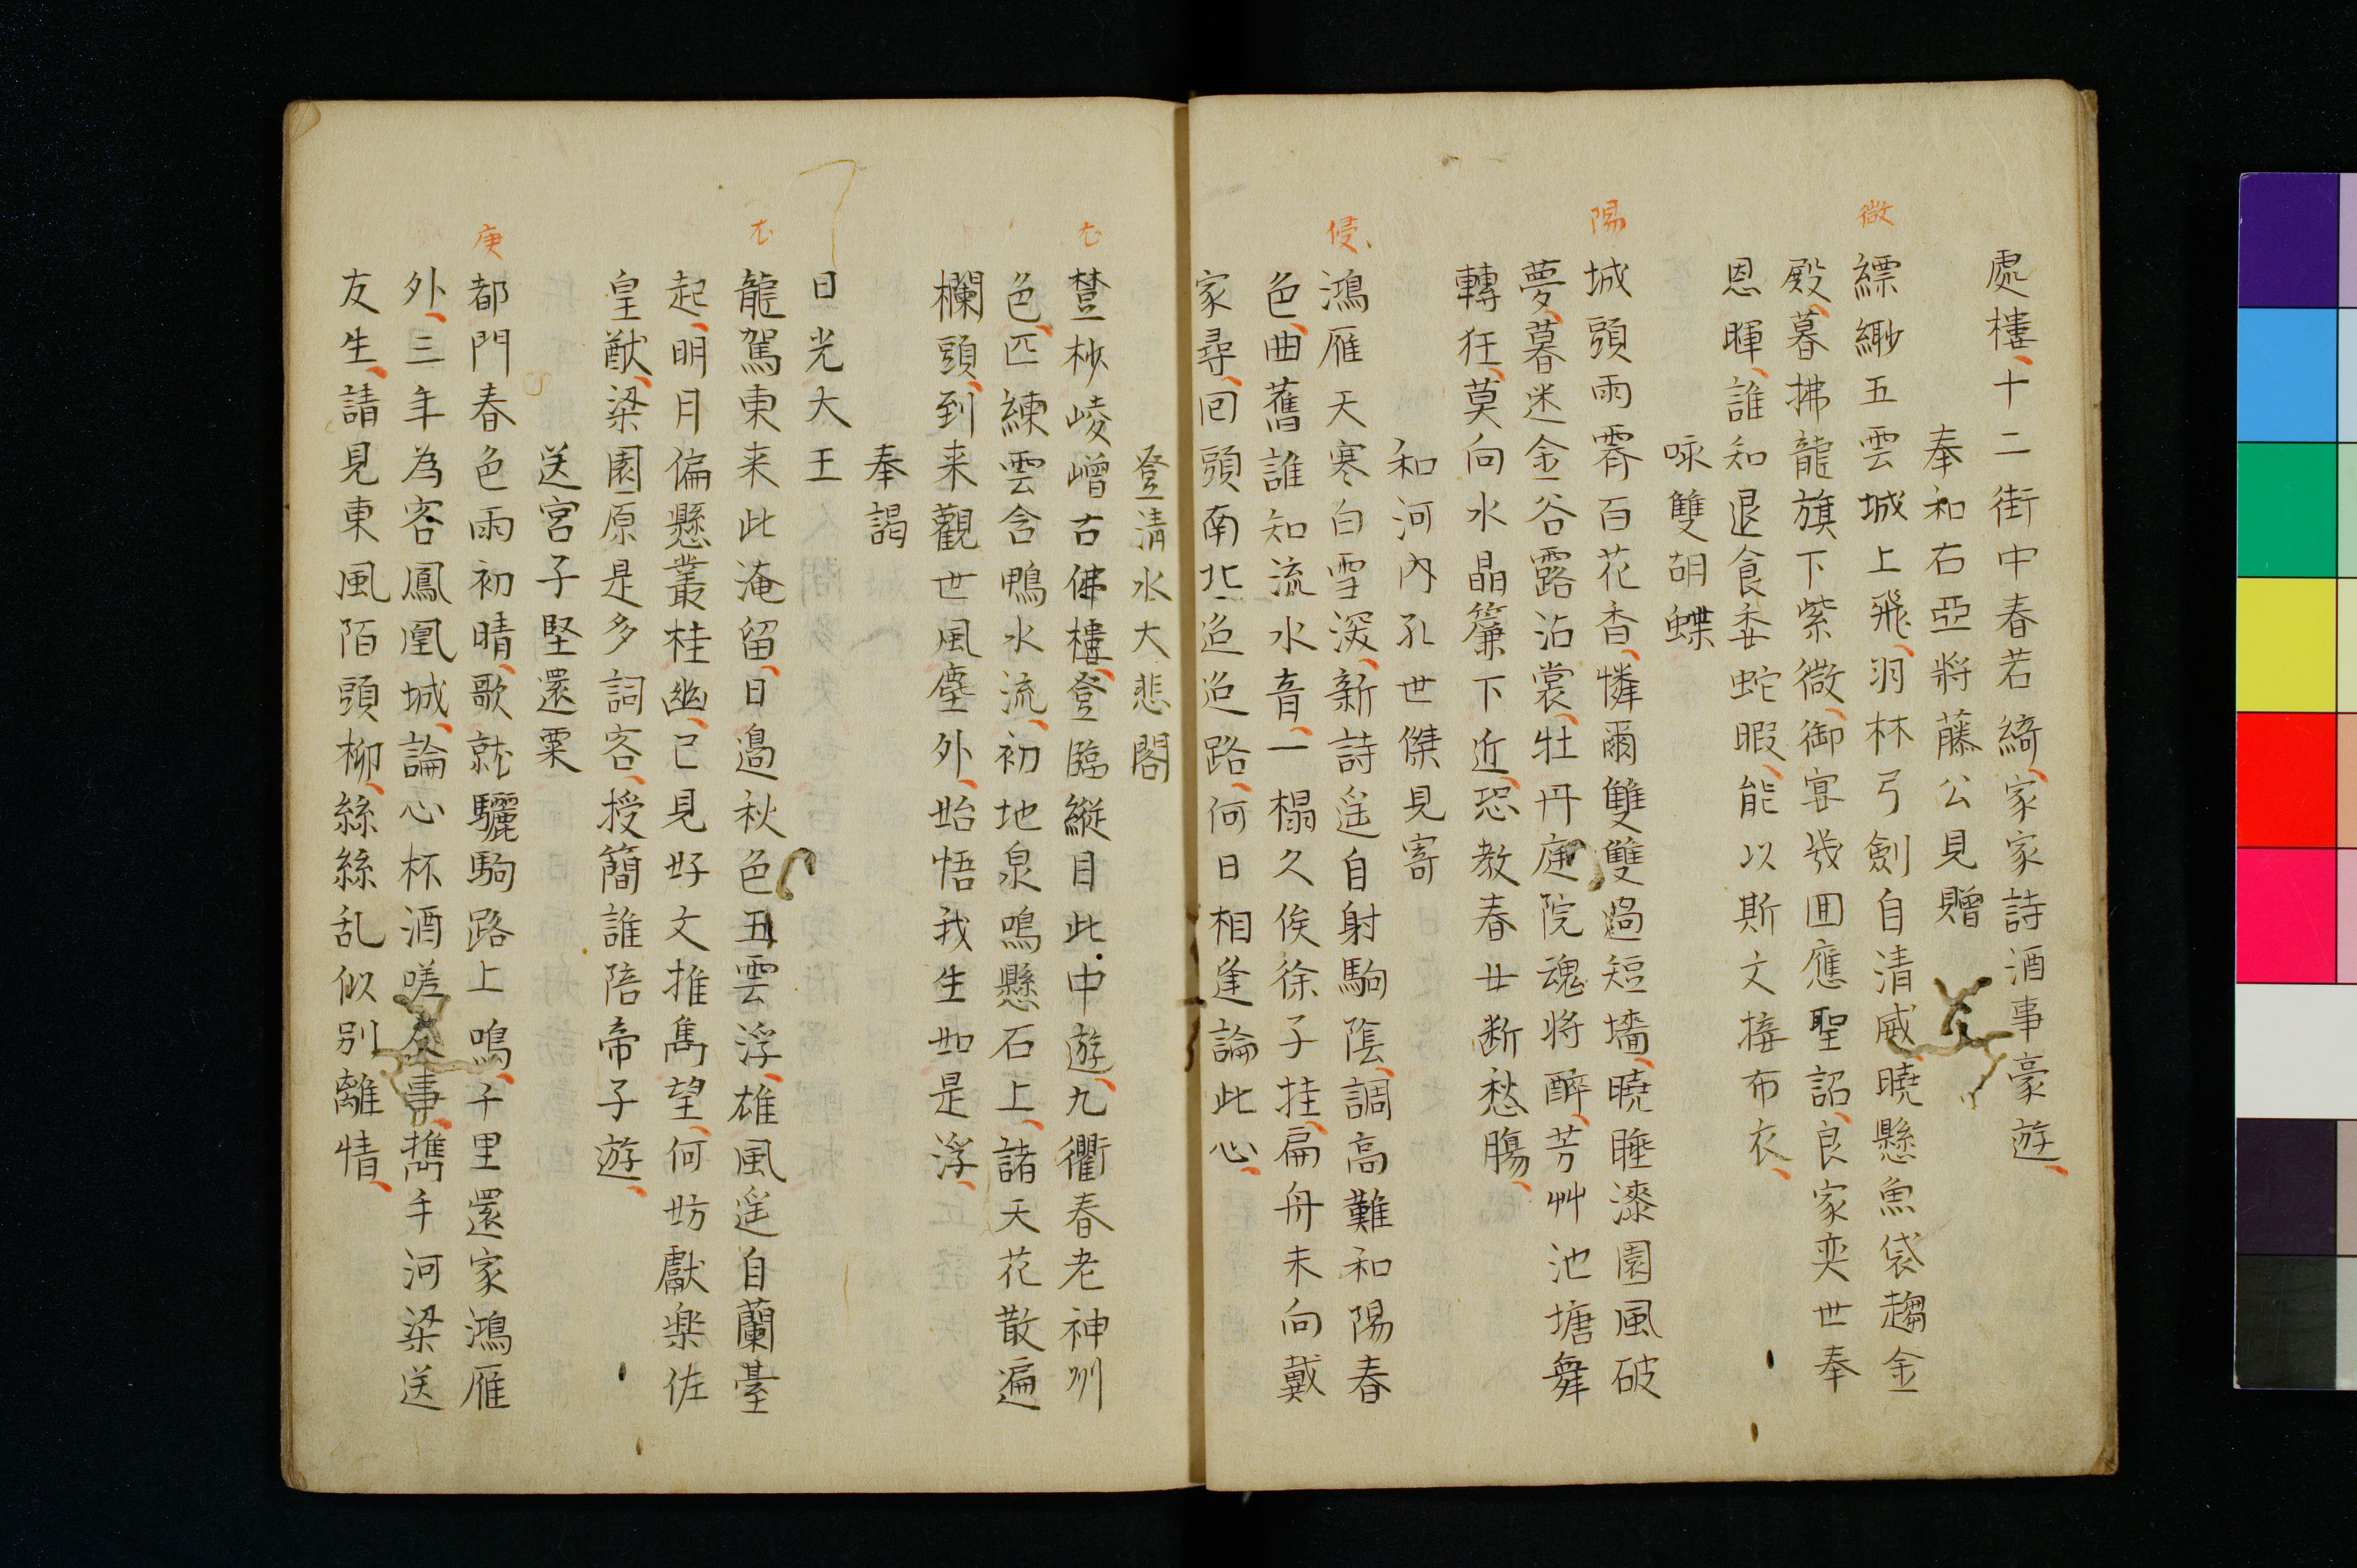 處樓、十二街中春若綺、家家詩酒事豪遊、
奉和右亞將藤公見贈
微
縹緲五雲城上飛、羽林弓劍自清威、曉懸魚袋趨金
殿、暮拂龍旗下紫微、御宴幾囬應聖詔、良家奕世奉
恩暉、誰知退食委蛇暇、能以斯文接布衣、
咏雙胡蝶
陽
城頭雨霽百花香、憐爾雙雙過短墻、曉睡漆園風破
夢、暮迷金谷露沾裳、牡丹庭院魂将醉、芳艸池塘舞
轉狂、莫向水晶簾下近、恐教春女断愁腸、
和河內孔世傑見寄
侵
鴻雁天寒白雪深、新詩遥自射駒陰、調高難和陽春
色、曲舊誰知流水音、一榻久俟徐子挂、扁舟未向戴
家尋、回頭南北迢迢路、何日相逢論此心、
登清水大悲閣
尤
蹔杪崚嶒古佛樓、登臨縱目此中遊、九衢春老神州
色、匹練雲含鴨水流、初地泉鳴懸石上、諸天花散遍
欄頭、到来觀世風塵外、始悟我生如是浮、
奉謁
日光大王
尤
龍駕東来此淹留、日邉秋色五雲浮、雄風遥自蘭臺
起、明月偏懸叢桂幽、已見好文推雋望、何妨獻樂佐
皇猷、梁園原是多詞客、授簡誰陪帝子遊、
送宮子堅還粟
庚
都門春色雨初晴、歌就驪駒路上鳴、千里還家鴻雁
外、三年為客鳳凰城、論心杯酒嗟事、攜手河梁送
友生、請見東風陌頭柳、絲絲乱似別離情、